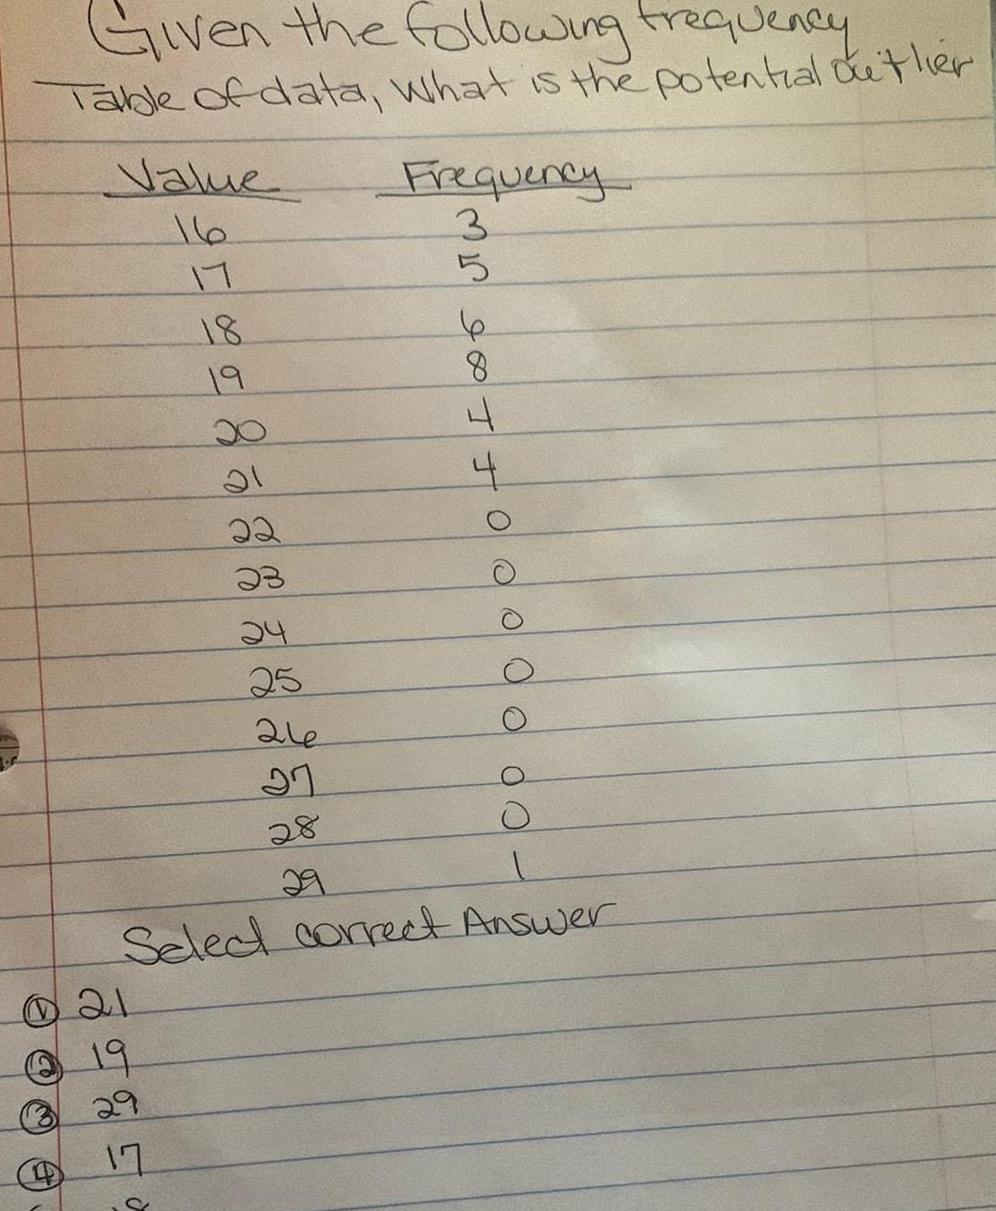 Given the following frequency
Table of data, What is the potential outlier
Value Frequency
16 3
17 5
18 6
19 8
20 4
21 4
22 0
23 0
24 0
25 0
26 0
27 0
28 0
29 1
Select correct Answer
① 21
② 19
③ 29
④ 17